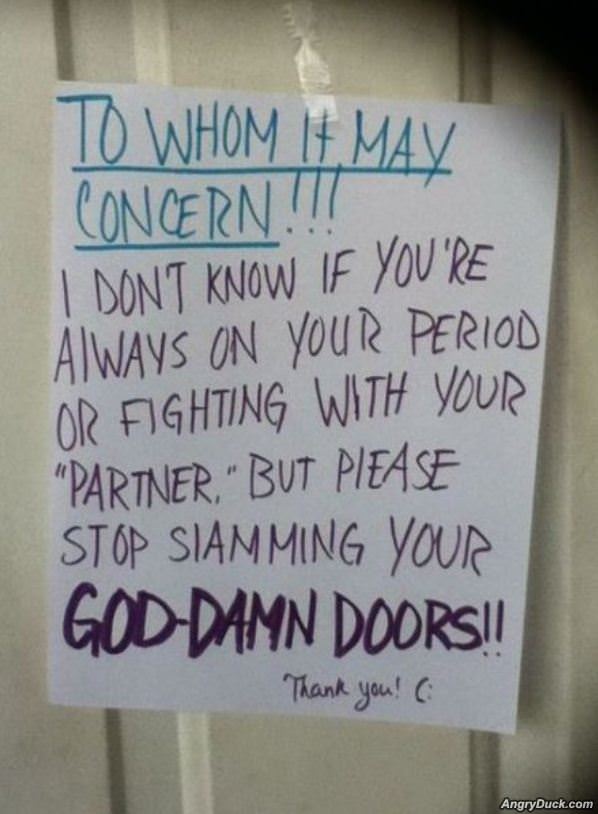 TO WHOM IT MAY
CONCERN!!!
I DON'T KNOW IF YOU'RE
AlWAYS ON YOUR PERIOD
OR FIGHTING WITH YOUR
"PARTNER," BUT PlEASE
STOP SlAMMING YOUR
GOD-DAMN DOORS!!
Thank you! (:
AngryDuck.com